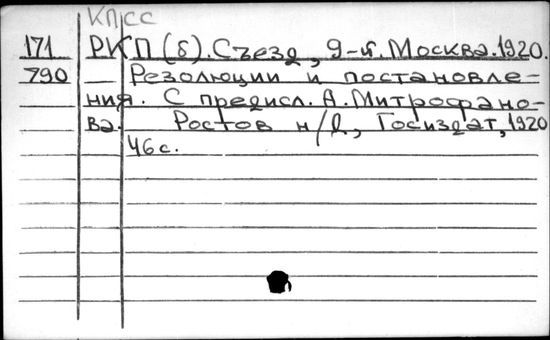 КПСС
171 РКП(б). Съезд, 9-й. Москва. 1920.
790 Резолюции и постановле-
ния. С предисл. А. Митрофано-
ва. Ростов н/Д, Госиздат, 1920
46 с.